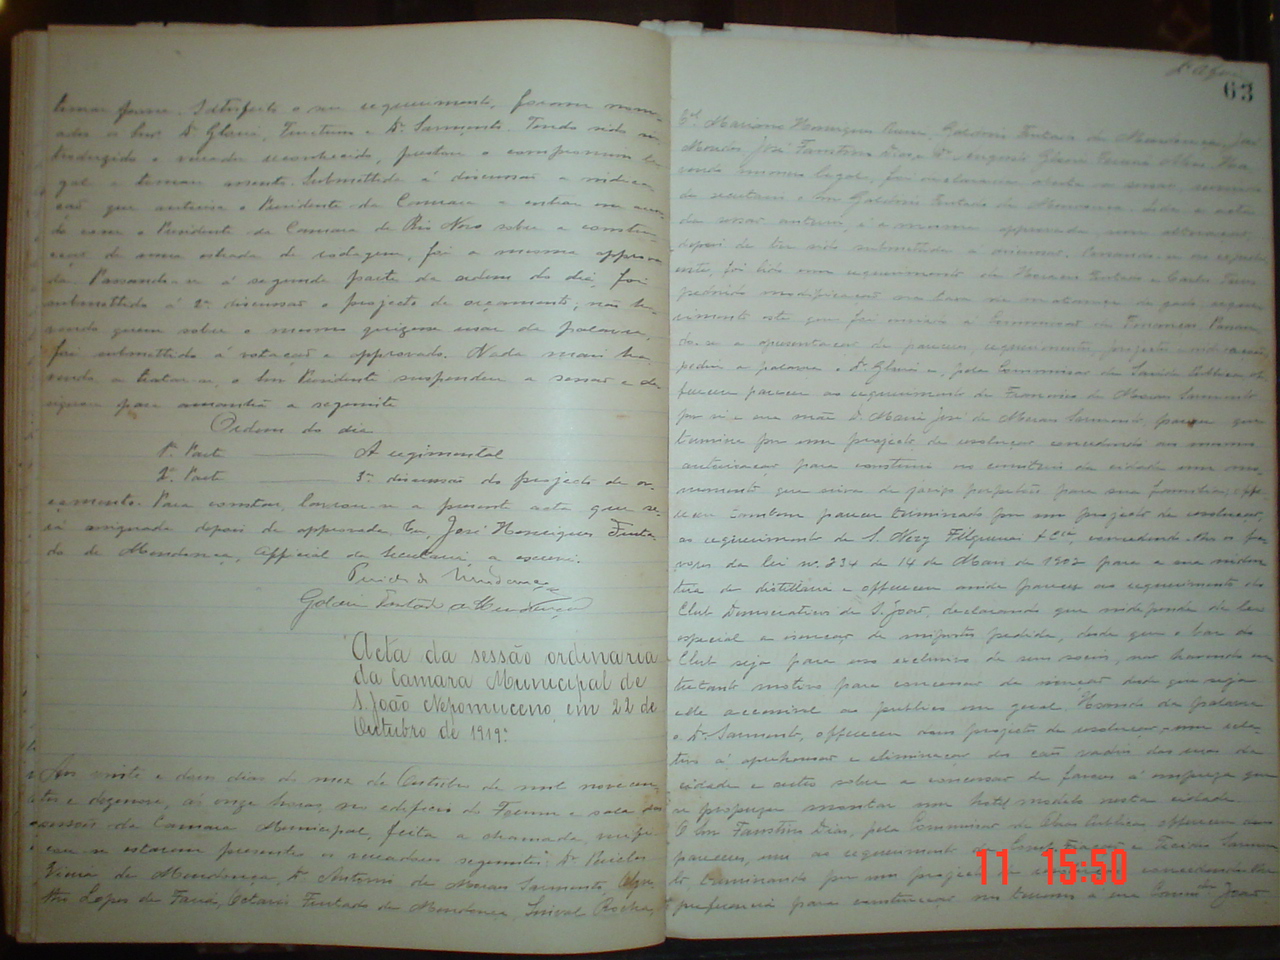 tomar posse. Satisfeito o seu requerimento, foram nome-
ados os Snrs. Dr. Glavis, Faustino e Dr. Sarmento. Tendo sido in-
troduzido o vereador reconhecido, prestou o compromisso le-
gal e tomou assento. Submettida á discussão a indica-
ção que autorisa o Presidente da Camara a entrar em accor-
do com o Presidente da Camara de Rio Novo sobre a constru-
cção de uma estrada de rodagem, foi a mesma approva-
da. Passando-se á segunda parte da ordem do dia, foi
submettido á 2ª discussão o projecto de orçamento; não ha-
vendo quem sobre o mesmo quizesse usar da palavra,
foi submettido á votação e approvado. Nada mais ha-
vendo a tratar-se, o Snr Presidente suspendeu a sessão e de-
signou para amanhã a seguinte
Ordem do dia
1ª Parte — A regimental
2ª Parte — 3ª discussão do projecto de or-
çamento. Para constar, lavrou-se a presente acta que se-
rá assignada depois de approvada. Eu, José Henriques Furta-
do de Mendonça, Official da Secretaria, a escrevi.
Furtado de Mendonça
Acta da sessão ordinaria
da Camara Municipal de
S. João Nepomuceno, em 22 de
Outubro de 1919.
Aos vinte e dois dias do mez de Outubro de mil novecen-
tos e dezenove, ás onze horas, no edificio do Forum e sala das
sessões da Camara Municipal, feita a chamada, verifi-
cou-se estarem presentes os vereadores seguintes: Dr. Pericles
Vieira de Mendonça, Dr. Antonio de Moraes Sarmento,
Lopes de Faria, Octavio Furtado de Mendonça, Rocha,
63
Cel. Mariano Henriques Furtado de Mendonça, José
José Faustino Dias e Dr. Augusto Glavis
numero legal, foi declarada aberta a sessão, servindo
de secretario o Snr Furtado de Mendonça. Lida a acta
da sessão anterior, é a mesma approvada sem alteração,
depois de ter sido submettida a discussão. Passando-se ao expedi-
ente, foi lido um requerimento de Furtado e Carlos
pedindo modificação na taxa de matança de gado, requeri-
mento este que foi enviado á Commissão de Finanças. Passan-
do-se a apresentação de pareceres, requerimentos, projectos e indicações,
pediu a palavra o Dr. Glavis e, pela Commissão de Saude Publica, of-
fereceu parecer ao requerimento de Francisco de Moraes Sarmento
por si e sua mãe D. Maria José de Moraes Sarmento, parecer que
termina por um projecto de resolução concedendo ao mesmo
autorisação para construir no cemiterio da cidade um mo-
numento que sirva de jazigo perpetuo para sua familia; offe-
receu tambem parecer terminado por um projecto de resolução,
ao requerimento de S. Nery Filgueiras & Cia, concedendo-lhes os fa-
vores da lei nº 234 de 14 de Maio de 1902 para a sua indus-
tria de distillaria e offereceu ainda parecer ao requerimento do
Club Democratico de S. João, declarando que independe de lei
especial a isenção de impostos pedida, desde que o bar do
Club seja para uso exclusivo de seus socios, não havendo en-
tretanto motivo para concessão de isenção desde que seja
elle accessivel ao publico em geral. Usando da palavra
o Dr. Sarmento, offereceu dois projectos de resolução, um rela-
tivo á apprehensão e eliminação dos cães vadios das ruas da
cidade e outro sobre a concessão de favores á empreza que
se propuzer montar um hotel modelo nesta cidade.
O Snr Faustino Dias, pela Commissão de Obras Publicas offereceu dois
pareceres, um ao requerimento de
terminando por um projecto de resolução concedendo-lhes
preferencia para construcção nos terrenos
11 15:50